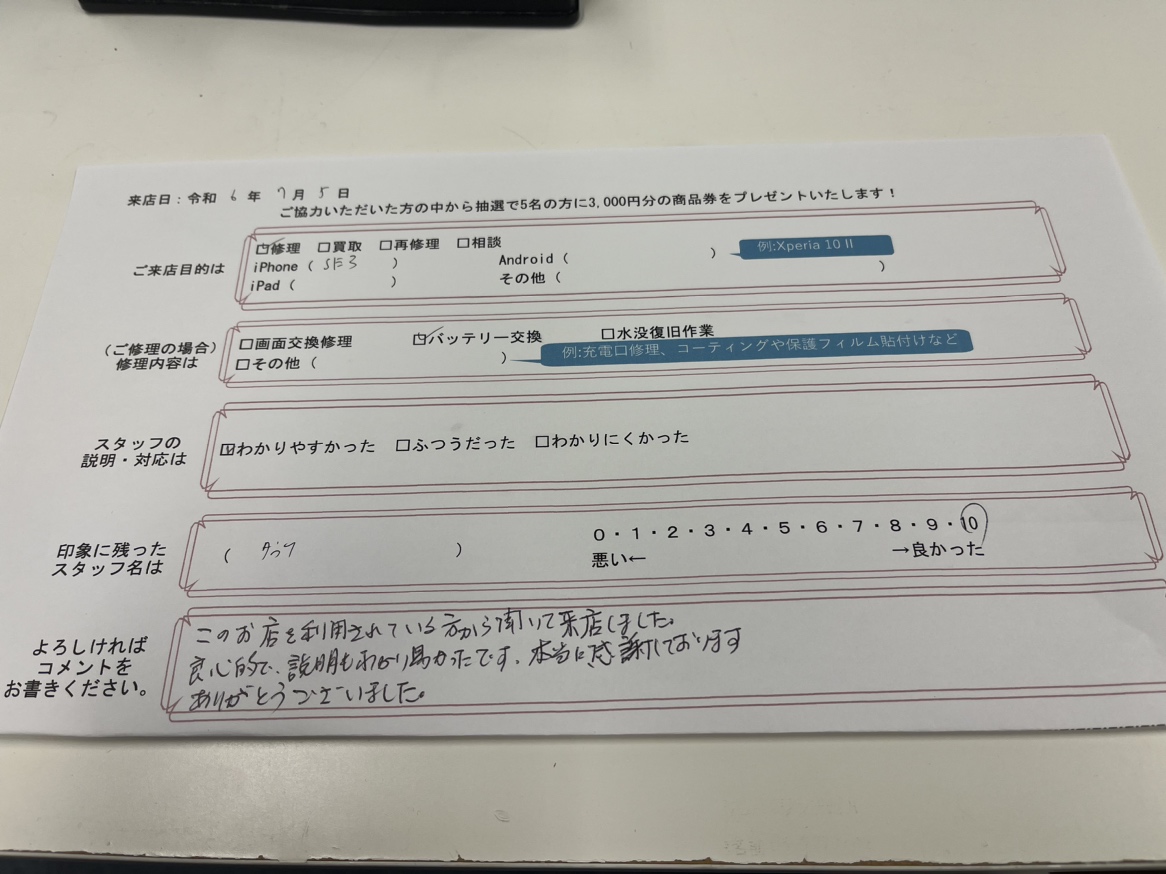 来店日：令和 6 年 7 月 5 日
ご協力いただいた方の中から抽選で5名の方に3,000円分の商品券をプレゼントいたします！
ご来店目的は
☑修理 □買取 □再修理 □相談
iPhone（ SE3 ） Android（ ） 例:Xperia 10 II
iPad（ ） その他（ ）
（ご修理の場合）
修理内容は
□画面交換修理 ☑バッテリー交換 □水没復旧作業
□その他（ ） 例:充電口修理、コーティングや保護フィルム貼付けなど
スタッフの
説明・対応は
☑わかりやすかった □ふつうだった □わかりにくかった
印象に残った
スタッフ名は
（ ）
0・1・2・3・4・5・6・7・8・9・10
悪い← →良かった
よろしければ
コメントを
お書きください。
このお店を利用されている方から聞いて来店しました。
良心的で、説明もわかり易かったです。本当に感謝しております
ありがとうございました。